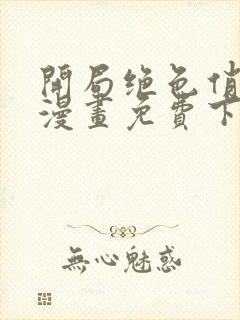 開局绝色俏
漫畫免費下
無心魅惑